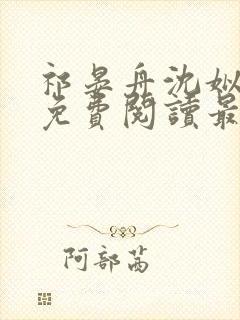 祁晏舟沈姒
免費閱讀最
阿部茜